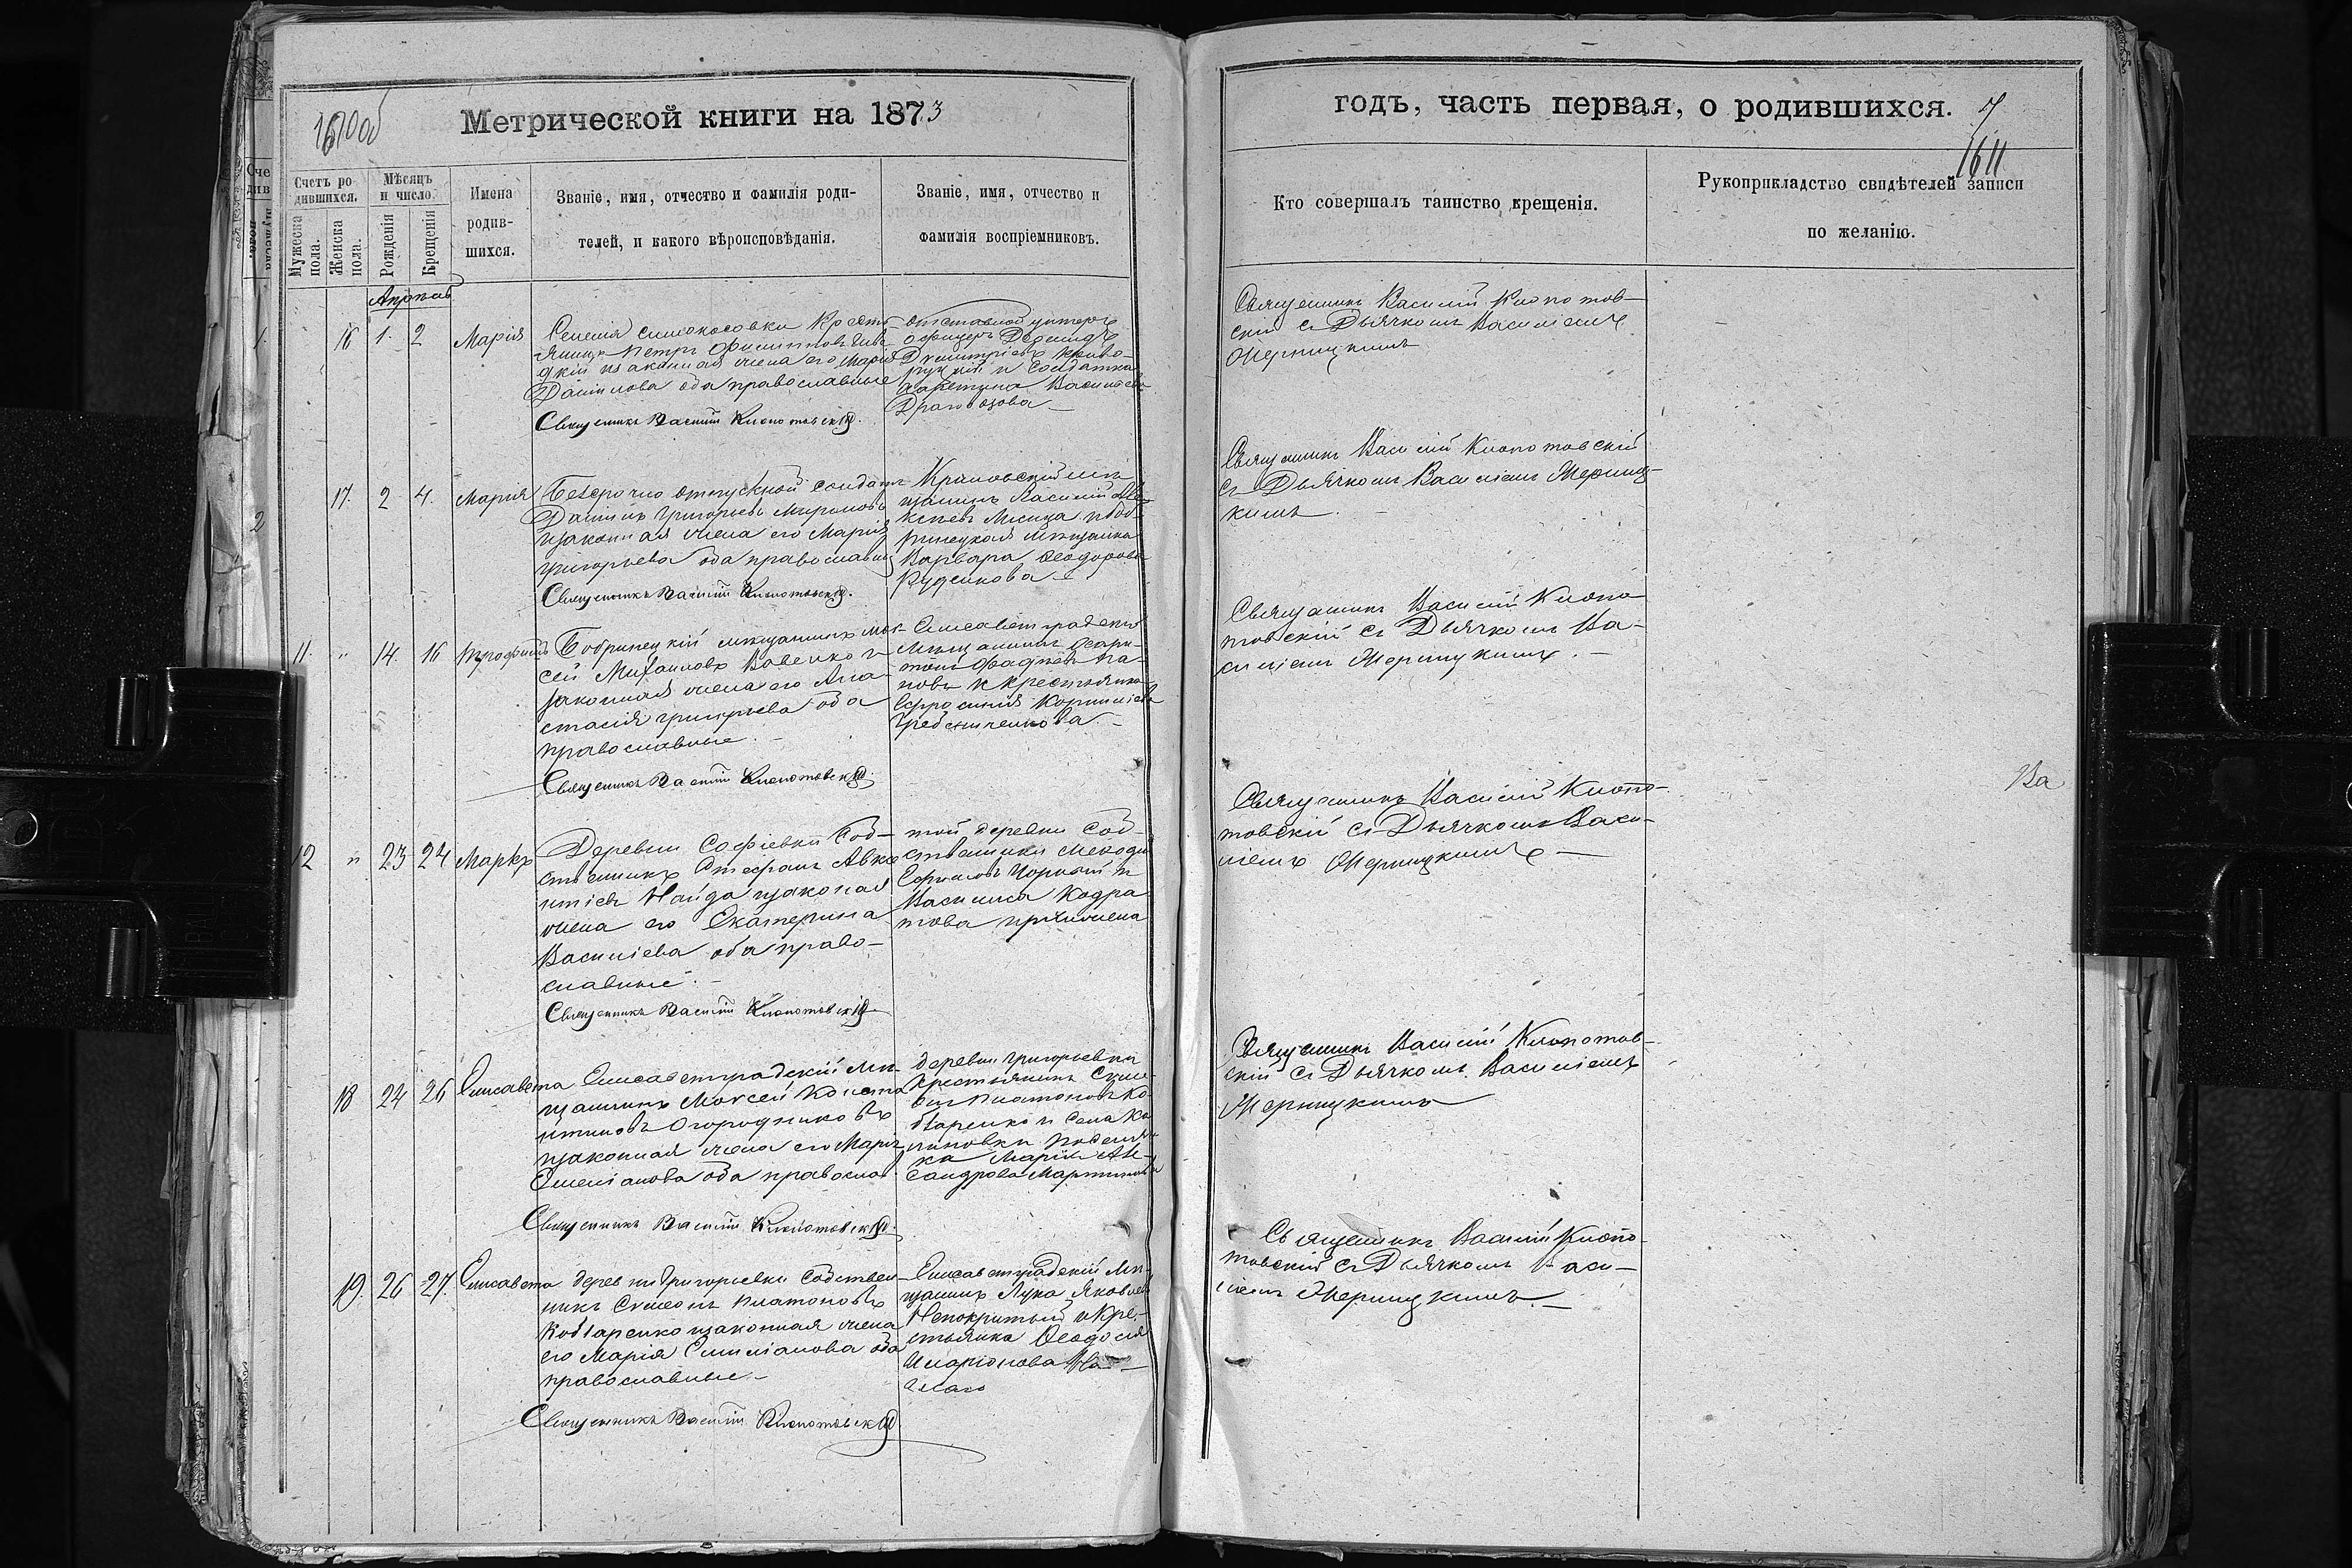 1610об
Метрической книги на 1873
Счетъ ро
дившихся.
Мѣсяцъ
и число.
Мужеска
пола.
Женска
пола.
Рожденія
Крещенія
Имена
родив-
шихся.
Званіе, имя, отчество и фамилія роди-
телей, и какого вѣроисповѣданія.
Званіе, имя, отчество и
фамилія воспріемниковъ.
Апрель
16 1. 2 Марія
Кресть
янинъ Петръ Филипповъ
законная жена его Марія
Данилова оба православные
Священникъ Василій Клопотовскій.
отставной унтеръ
офицеръ
Дмитріевъ Криво-
руцкій и солдатка
Васильева
Драгозова
17. 2 4. Мария
Безсрочно отпускной солдатъ
Даніилъ Григорьевъ Мироновъ
изаконная жена его Марія
григорьева оба православны
Священникъ Василій Клопотовскій.
мѣ
щанинъ Василій
Лисица и Боб-
ринецкая мѣщанка
Варвара Ѳеодорова
Руденкова
11. " 14. 16 Трофимъ
Бобринецкій мѣщанинъ Мок-
сей Михаиловъ Вовенко и
законная жена его Ана
стасія григорьева оба
православные.
Священникъ Василій Клопотовскій.
Елисаветградскій
мѣщанинъ Хари-
тонъ Фадѣевъ Па-
новъ и крестьянка
Евфросинія Корниліева
Гребенниченкова
12 " 23 24 Маркъ
Деревни Софіевки Соб-
ственникъ Стефанъ Авксе
нтіевъ Найда изаконая
жена его Екатерина
Василіева оба право-
славные.
Священникъ Василій Клопотовскій
той деревни Соб-
ственники Меѳодій
Ефимовъ Чорный и
Василиса Кодра
това
18 24 26 Елисавета
Елисаветградскій Мѣ-
щанинъ Моксей Конста
нтиновъ Огородниковъ
изаконная жена его Марія
Емеліанова оба православ.
Священникъ Василій Клопотовскій.
деревни григорьевки
Крестьянинъ Симе-
онъ Платоновъ Ко-
бзаренко и Села Ка
линовки поселян
ка Марія Алк
сандрова Мартинова
19. 26 27. Елисавета
деревни Григорьевки Собствен-
никъ Симеонъ Платоновъ
Кобзаренко изаконная жена
его Марія Емиліанова оба
православные.
Священникъ Василій Клопотовскій
Елисаветградскій Мѣ-
щанинъ Лука Яковлевъ
Непокритый и Кре-
стьянка Ѳеодосія
Иларіонова
годъ, часть первая, о родившихся.
7
1611
Кто совершалъ таинство крещенія.
Рукоприкладство свидѣтелей записи
по желанію.
Священникъ Василій Клопотов-
скій съ Дьячкомъ Василіемъ
Жерницкимъ
Священникъ Василій Клопотовскій
съ Дьячкомъ Василіемъ Жерниц-
кимъ.
Священникъ Василій Клопо
товскій съ Дьячкомъ Ва-
силіемъ Жерницкимъ.
Священникъ Василій Клопо-
товскій съ Дьячкомъ Васи-
ліемъ Жерницкимъ
Ва
Священникъ Василій Клопотов-
скій съ Дьячкомъ Василіемъ
Жерницкимъ
Священникъ Василій Клопо-
товскій съ Дьячкомъ Васи-
ліемъ Жерницкимъ.